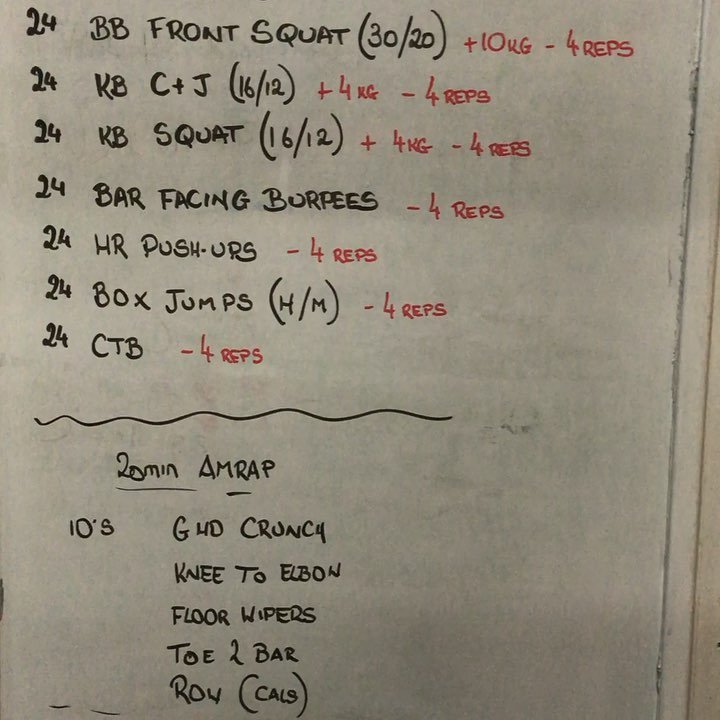 24 BB FRONT SQUAT (30/20) +10KG - 4 REPS
24 KB C+J (16/12) + 4KG - 4 REPS
24 KB SQUAT (16/12) + 4KG - 4 REPS
24 BAR FACING BURPEES - 4 REPS
24 HR PUSH-UPS - 4 REPS
24 BOX JUMPS (H/M) - 4 REPS
24 CTB - 4 REPS
20min AMRAP
10'S GHD CRUNCH
KNEE TO ELBOW
FLOOR WIPERS
TOE 2 BAR
ROW (CALS)